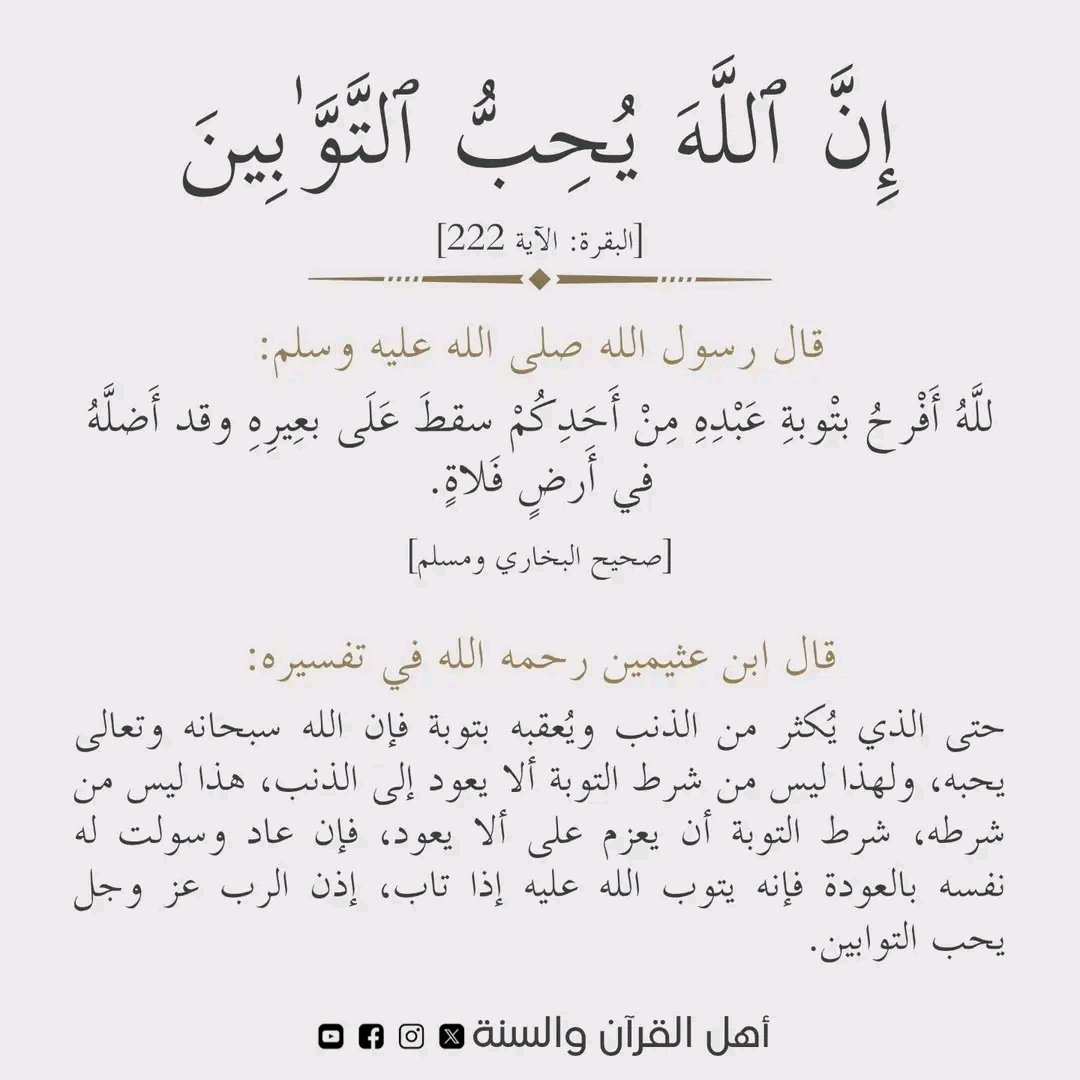 إِنَّ ٱللَّهَ يُحِبُّ ٱلتَّوَّٰبِينَ
[البقرة: الآية 222]
قال رسول الله صلى الله عليه وسلم:
للَّهُ أَفْرحُ بتْوبةِ عَبْدِهِ مِنْ أَحَدِكُمْ سقطَ عَلَى بعِيرِهِ وقد أَضلَّهُ
في أَرضٍ فَلاةٍ.
[صحيح البخاري ومسلم]
قال ابن عثيمين رحمه الله في تفسيره:
حتى الذي يُكثر من الذنب ويُعقبه بتوبة فإن الله سبحانه وتعالى
يحبه، ولهذا ليس من شرط التوبة ألا يعود إلى الذنب، هذا ليس من
شرطه، شرط التوبة أن يعزم على ألا يعود، فإن عاد وسولت له
نفسه بالعودة فإنه يتوب الله عليه إذا تاب، إذن الرب عز وجل
يحب التوابين.
أهل القرآن والسنة